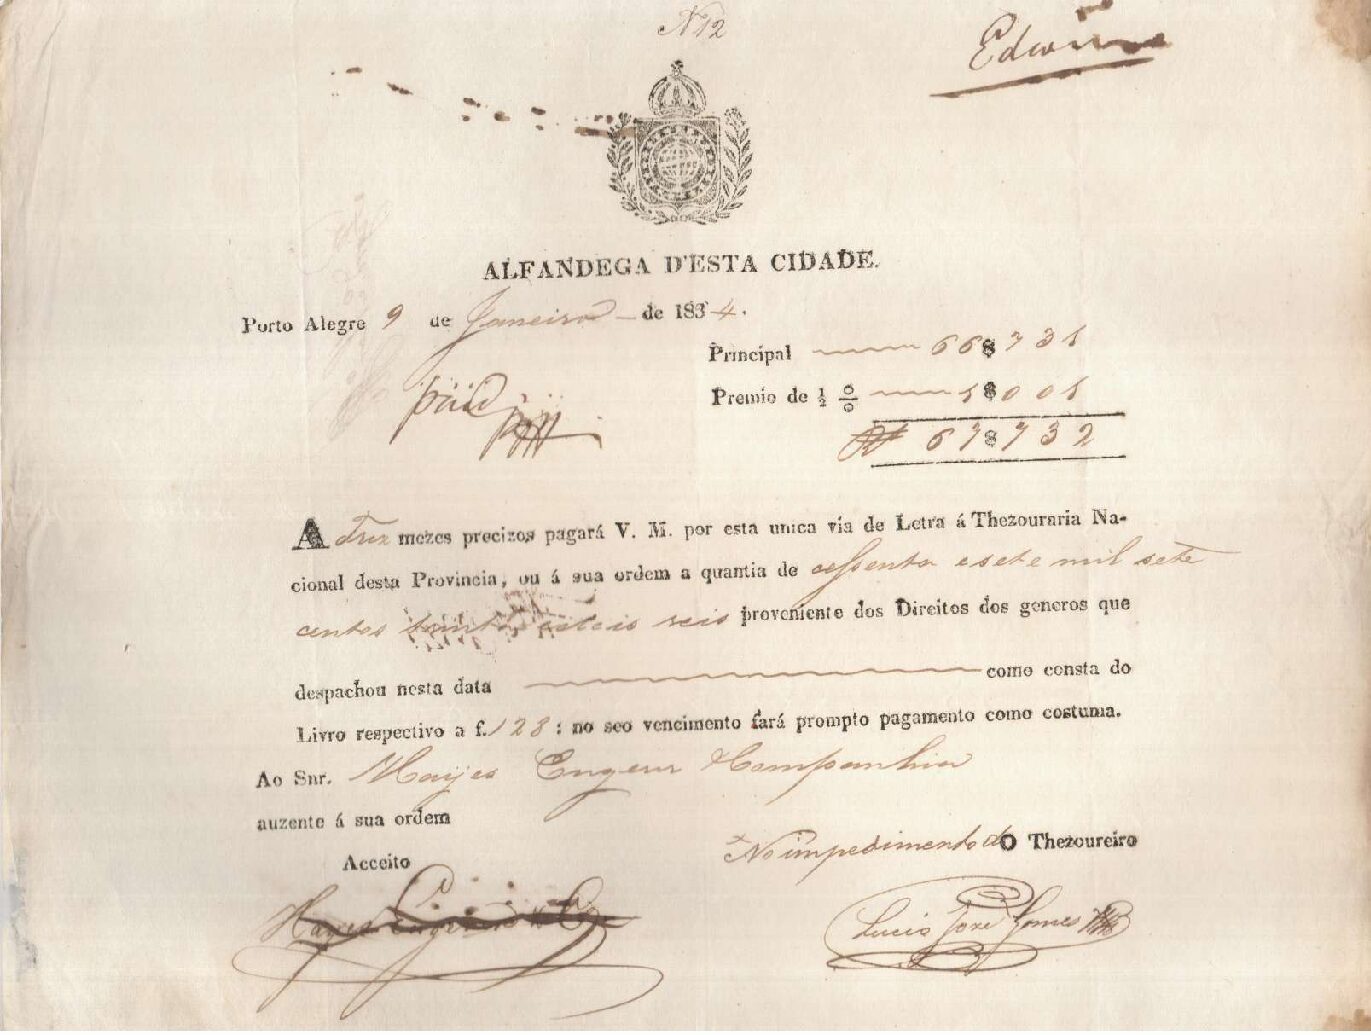 N 12
ALFANDEGA D'ESTA CIDADE.
Porto Alegre 9 de Janeiro de 1834.
Principal 66$731
paid
Premio de ½ 0/0 1$001
R 67$732
A Trez mezes precizos pagará V. M. por esta unica via de Letra á Thezouraria Na-
cional desta Provincia, ou á sua ordem a quantia de cessenta e sete mil sete
centos trinta reis proveniente dos Direitos dos generos que
despachou nesta data como consta do
Livro respectivo a f. 128 : no seo vencimento fará prompto pagamento como costuma.
Ao Snr. Hayes Engerer & Companhia
auzente á sua ordem
No impedimento do O Thezoureiro
Acceito
Hayes Engerer & Co
Lucio Jozé Gomes